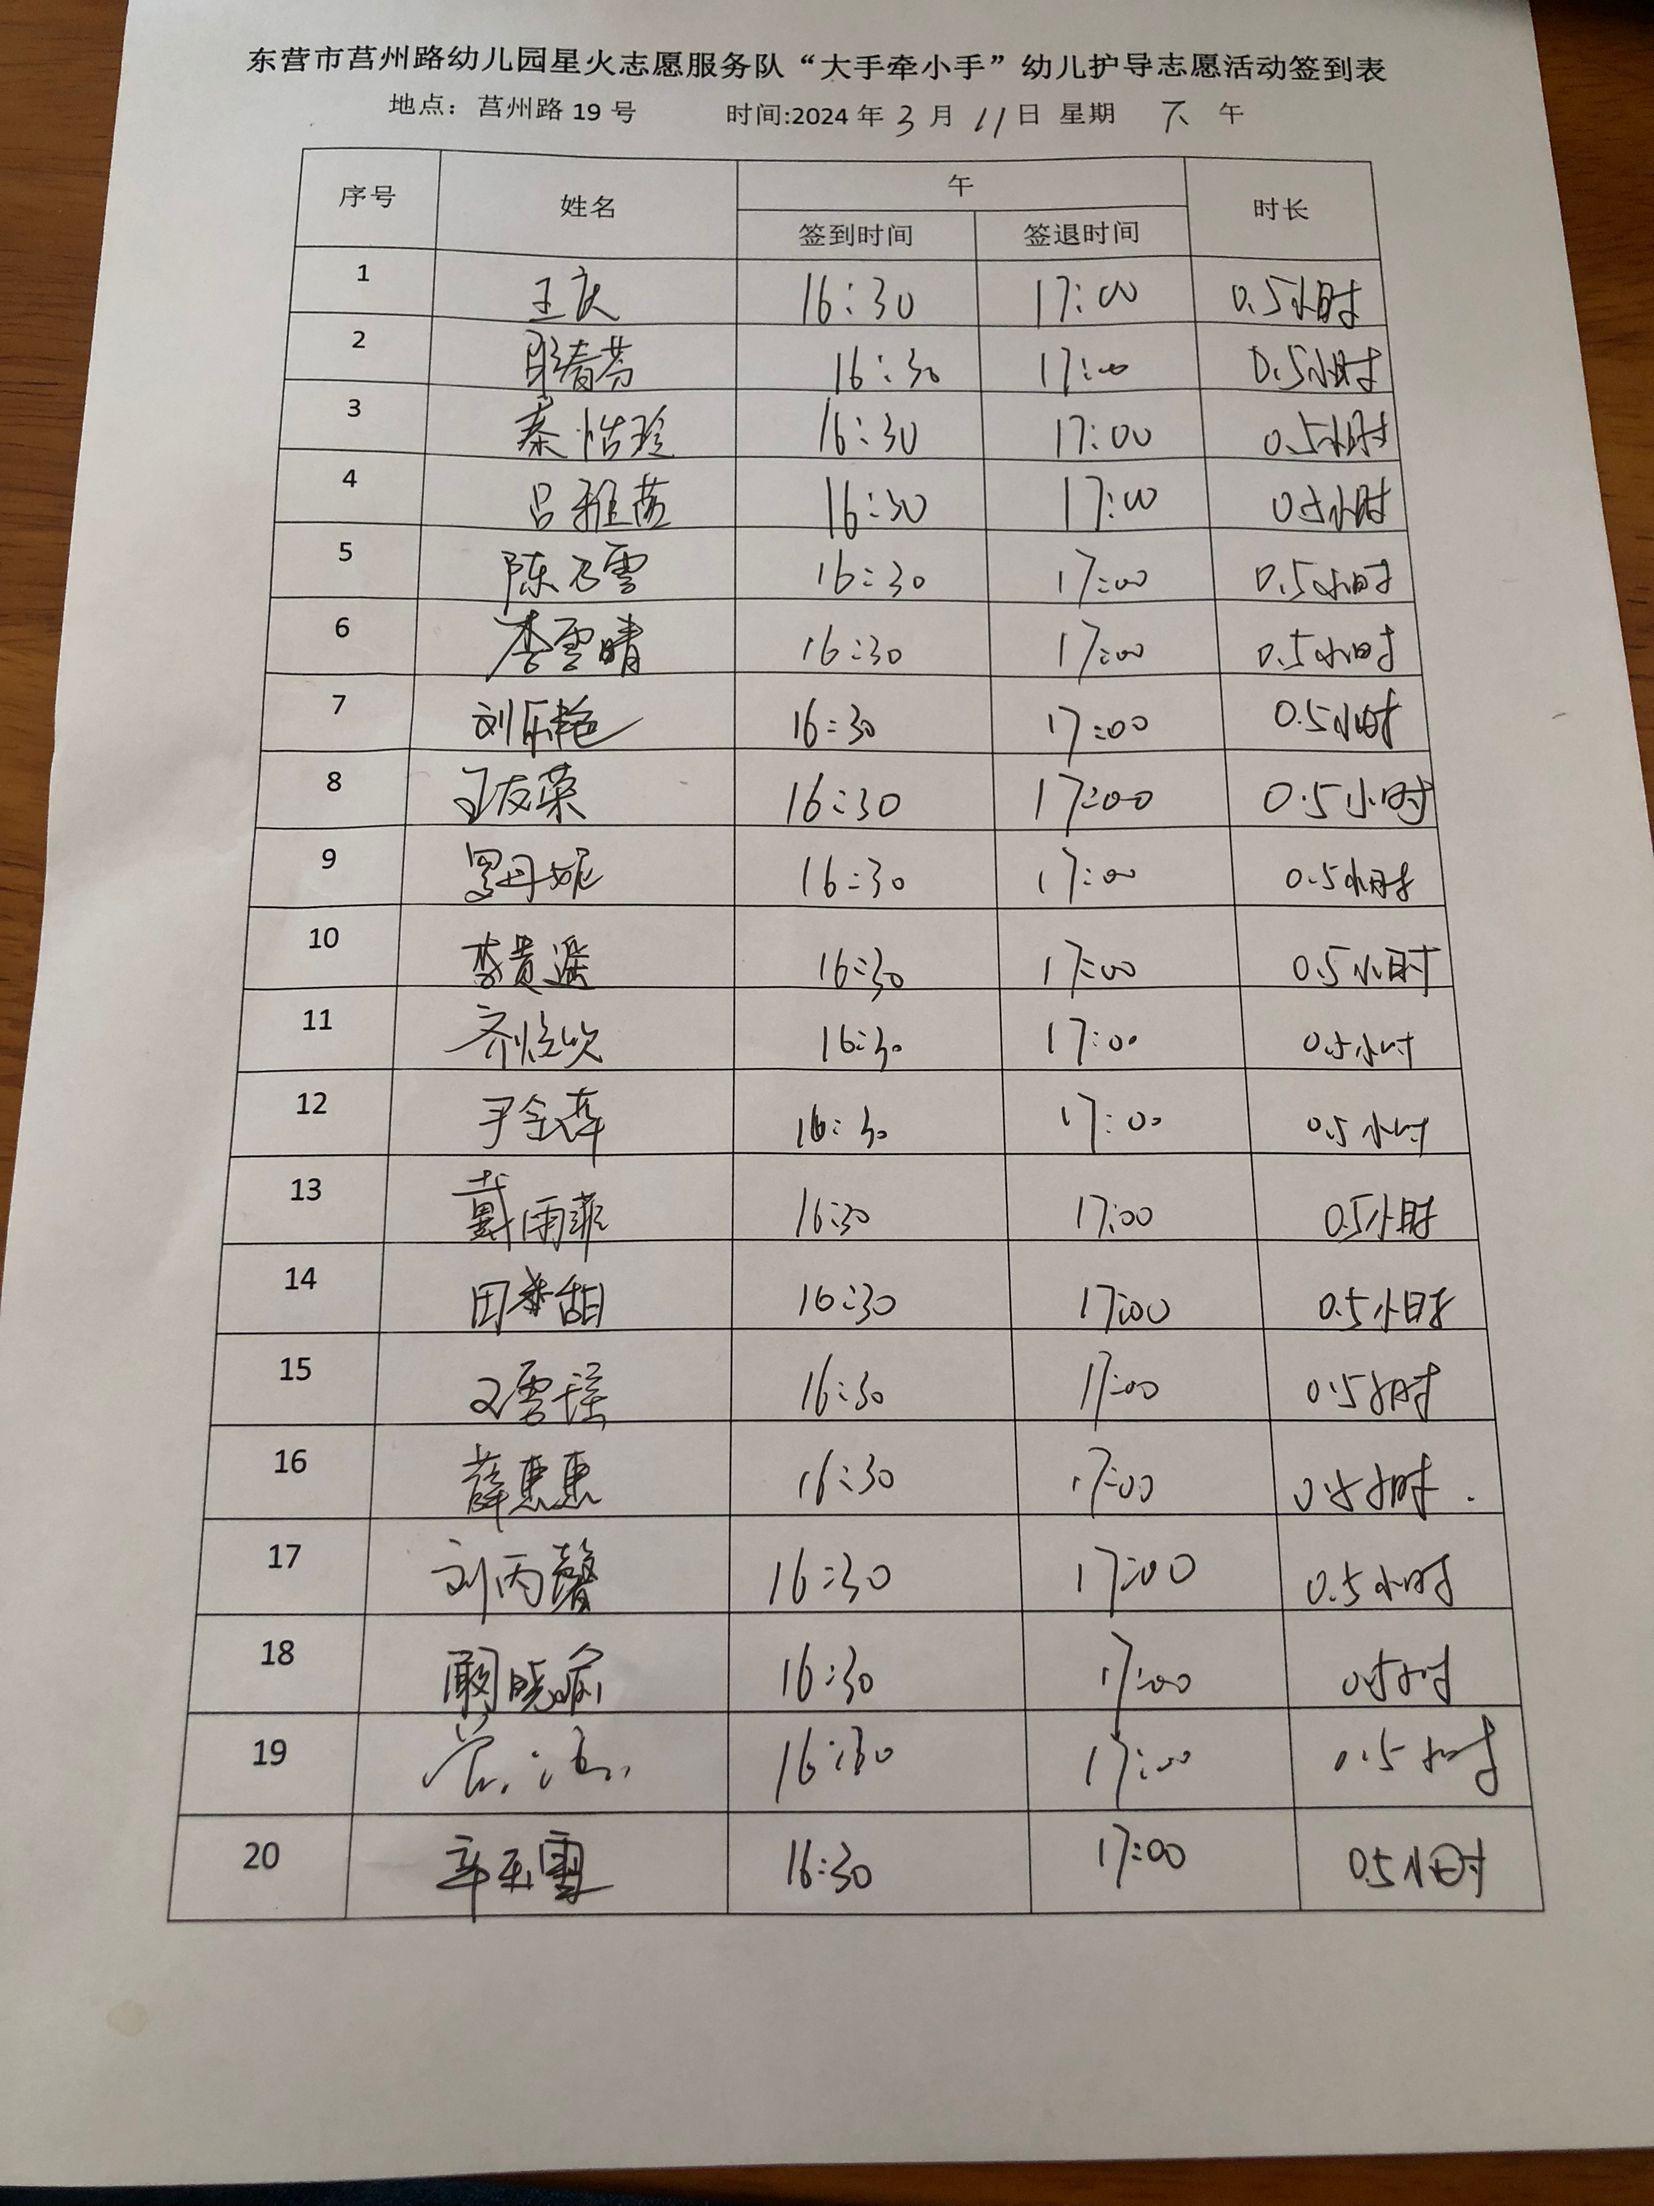 东营市莒州路幼儿园星火志愿服务队“大手牵小手”幼儿护导志愿活动签到表
地点：莒州路 19 号 时间:2024 年 3 月 11 日 星期 下 午
序号 姓名 午 时长
签到时间 签退时间
1 王庆 16:30 17:00 0.5小时
2 春芬 16:30 17:00 0.5小时
3 秦怡珍 16:30 17:00 0.5小时
4 吕雅茹 16:30 17:00 0.5小时
5 陈乃雪 16:30 17:00 0.5小时
6 李雪晴 16:30 17:00 0.5小时
7 刘乐艳 16:30 17:00 0.5小时
8 王友荣 16:30 17:00 0.5小时
9 罗丹妮 16:30 17:00 0.5小时
10 李贵遥 16:30 17:00 0.5小时
11 齐 16:30 17:00 0.5小时
12 于金萍 16:30 17:00 0.5小时
13 戴雨菲 16:30 17:00 0.5小时
14 田 甜 16:30 17:00 0.5小时
15 雪瑶 16:30 17:00 0.5小时
16 薛惠惠 16:30 17:00 0.5小时.
17 刘丙馨 16:30 17:00 0.5小时
18 阚晓 16:30 17:00 0.5小时
19 16:30 17:00 0.5小时
20 辛玉雪 16:30 17:00 0.5小时